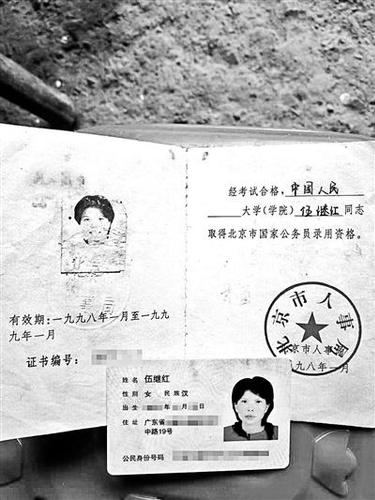 有效期：一九九八年一月至一九九
九年一月
证书编号：
经考试合格，中国人民
大学(学院)伍继红同志
取得北京市国家公务员录用资格。
北京市人事局
京市人事
九八年一月
姓名 伍继红
性别 女 民族 汉
出生 年 月 日
住址 广东省
中路19号
公民身份号码